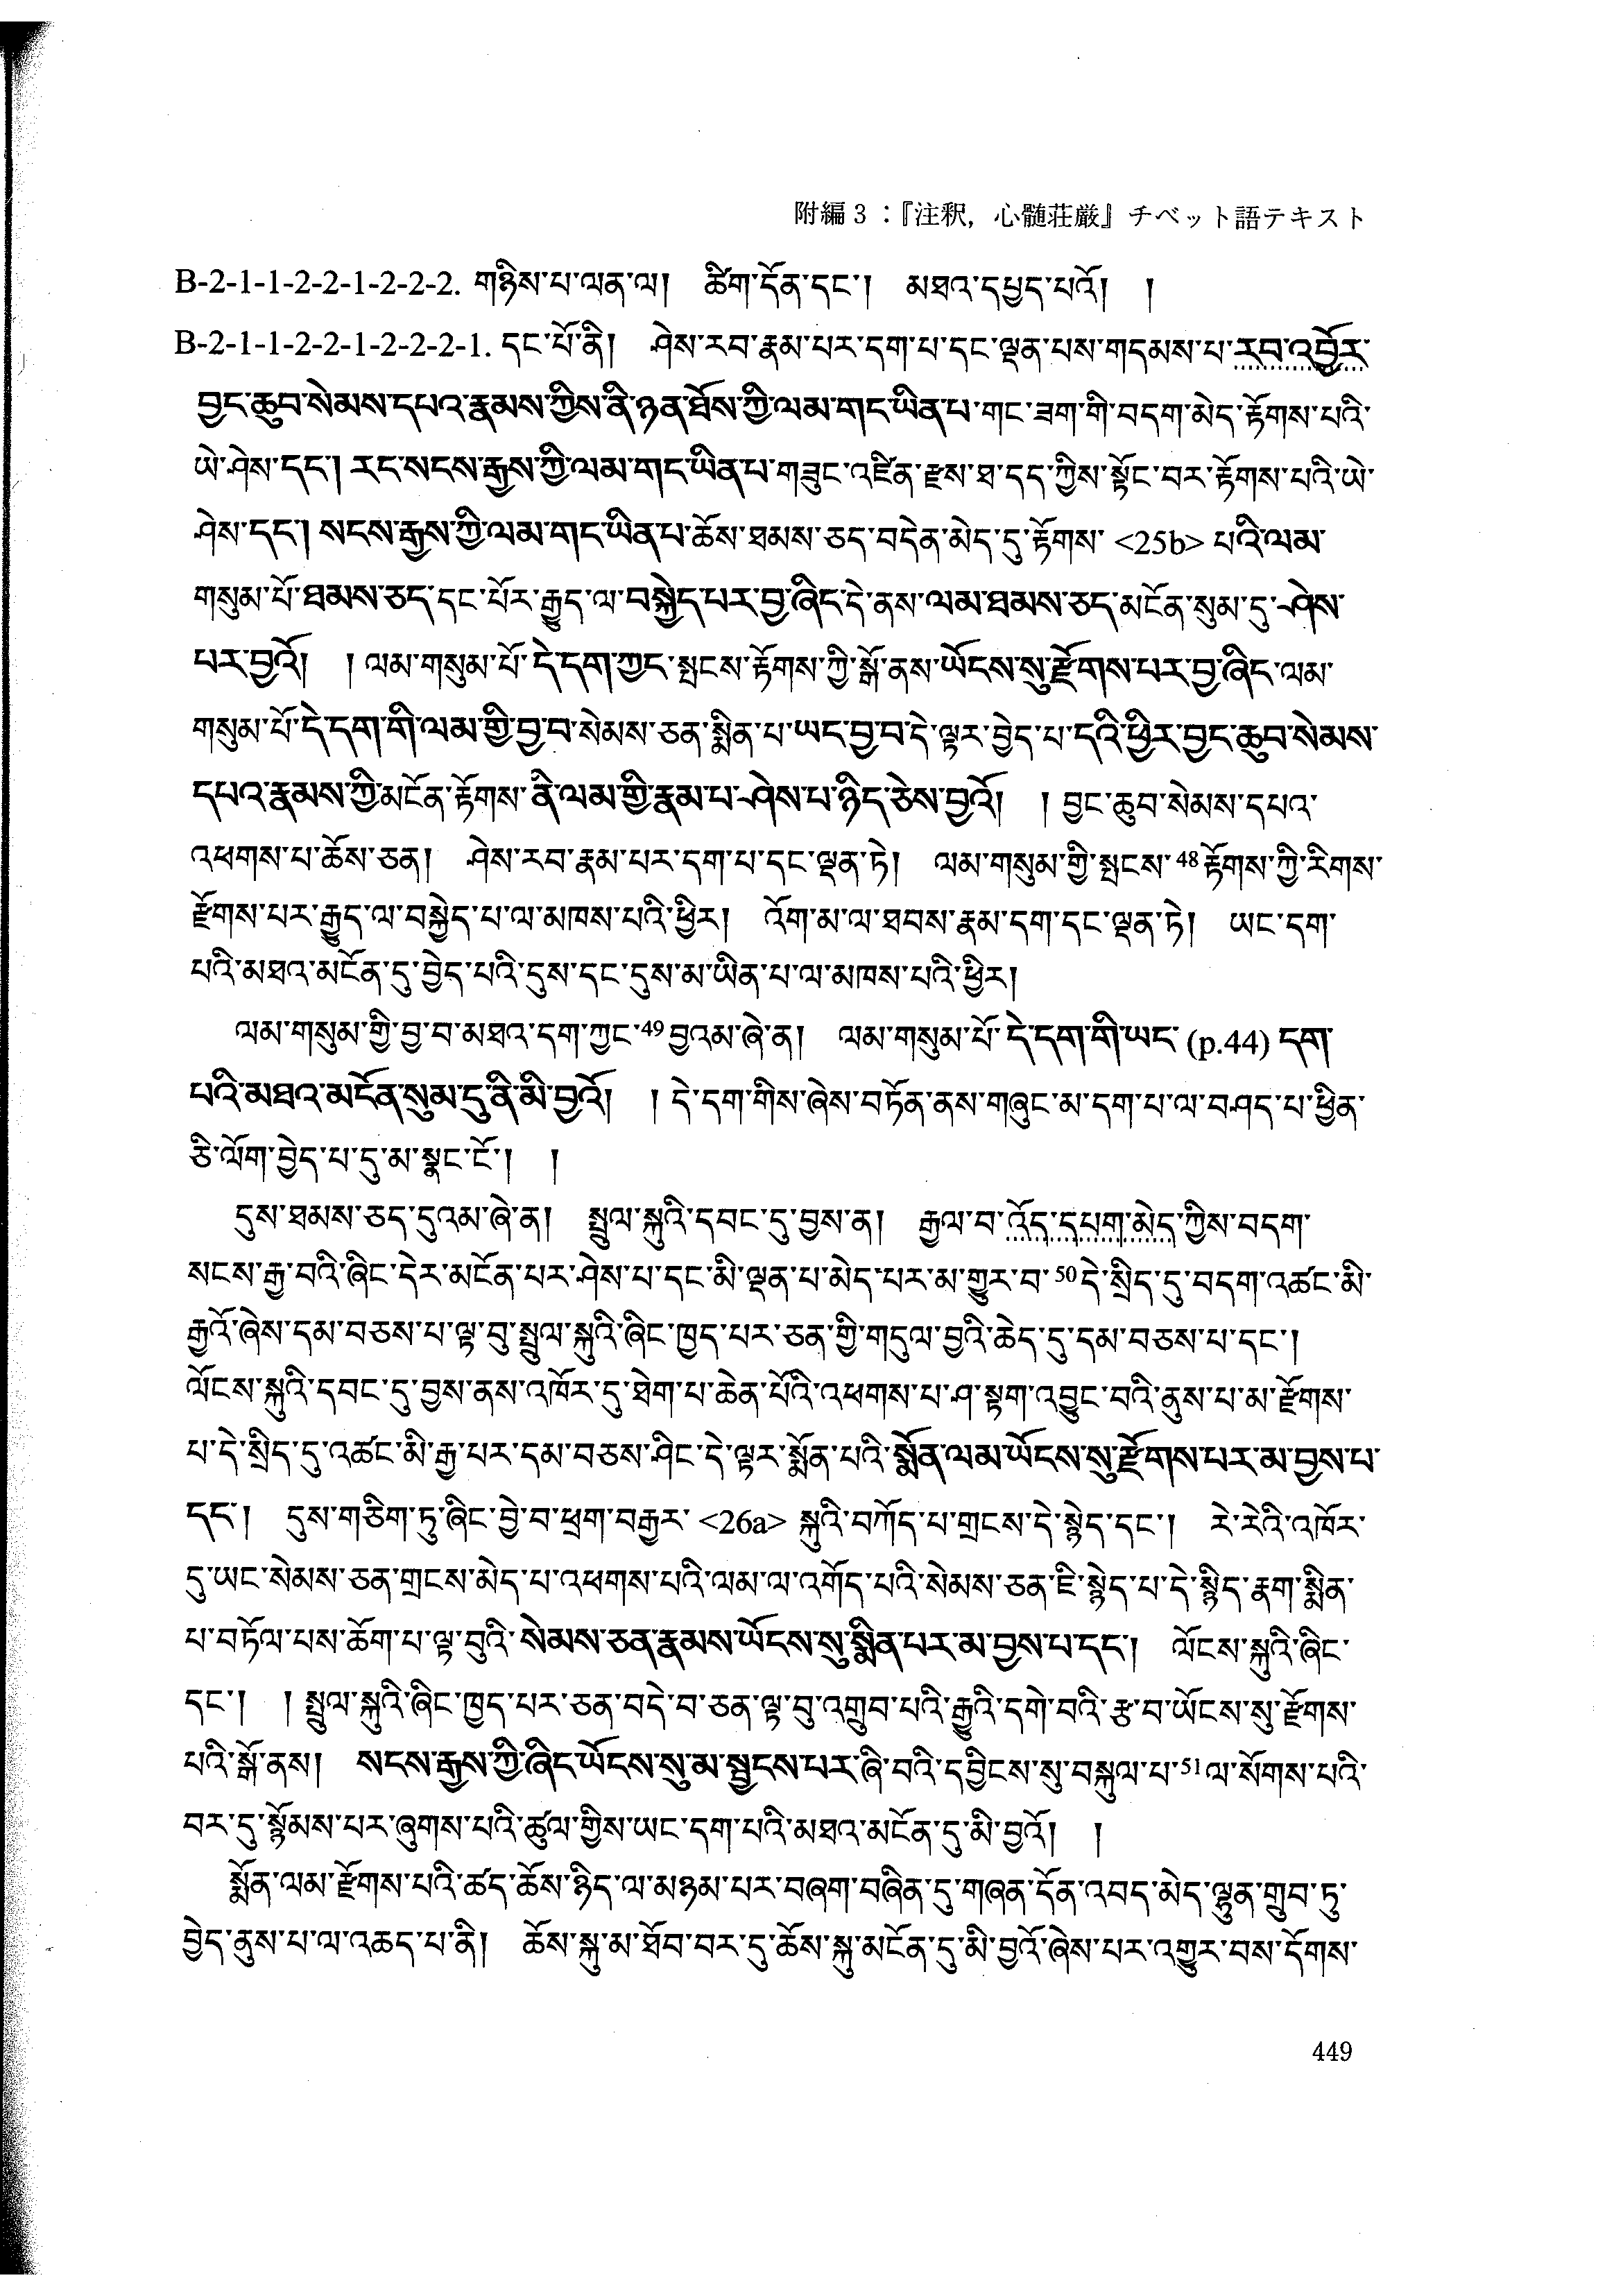 附編3：『注釈，心髄荘厳』チベット語テキスト
B-2-1-1-2-2-1-2-2-2. གཉིས་པ་ལན་ལ། ཚིག་དོན་དང་། མཐའ་དཔྱད་པའོ། །
B-2-1-1-2-2-1-2-2-2-1. དང་པོ་ནི། ཤེས་རབ་རྣམ་པར་དག་པ་དང་ལྡན་པས་གདམས་པ་རབ་འབྱོར་
བྱང་ཆུབ་སེམས་དཔའ་རྣམས་ཀྱིས་ནི་ཉན་ཐོས་ཀྱི་ལམ་གང་ཡིན་པ་གང་ཟག་གི་བདག་མེད་རྟོགས་པའི་
ཡེ་ཤེས་དང་། རང་སངས་རྒྱས་ཀྱི་ལམ་གང་ཡིན་པ་གཟུང་འཛིན་རྫས་ཐ་དད་ཀྱིས་སྟོང་བར་རྟོགས་པའི་ཡེ་
ཤེས་དང་། སངས་རྒྱས་ཀྱི་ལམ་གང་ཡིན་པ་ཆོས་ཐམས་ཅད་བདེན་མེད་དུ་རྟོགས་ <25b> པའི་ལམ་
གསུམ་པོ་ཐམས་ཅད་དང་པོར་རྒྱུད་ལ་བསྐྱེད་པར་བྱ་ཞིང་དེ་ནས་ལམ་ཐམས་ཅད་མངོན་སུམ་དུ་ཤེས་
པར་བྱའོ། །ལམ་གསུམ་པོ་དེ་དག་ཀྱང་སྤངས་རྟོགས་ཀྱི་སྒོ་ནས་ཡོངས་སུ་རྫོགས་པར་བྱ་ཞིང་ལམ་
གསུམ་པོ་དེ་དག་གི་ལམ་གྱི་བྱ་བ་སེམས་ཅན་སྨིན་པ་ཡང་བྱ་བ་དེ་ལྟར་བྱེད་པ་དའི་ཕྱིར་བྱང་ཆུབ་སེམས་
དཔའ་རྣམས་ཀྱི་མངོན་རྟོགས་ནི་ལམ་གྱི་རྣམ་པ་ཤེས་པ་ཉིད་ཅེས་བྱའོ། །བྱང་ཆུབ་སེམས་དཔའ་
འཕགས་པ་ཆོས་ཅན། ཤེས་རབ་རྣམ་པར་དག་པ་དང་ལྡན་ཏེ། ལམ་གསུམ་གྱི་སྤངས་48རྟོགས་ཀྱི་རིགས་
རྫོགས་པར་རྒྱུད་ལ་བསྐྱེད་པ་ལ་མཁས་པའི་ཕྱིར། འོག་མ་ལ་ཐབས་རྣམ་དག་དང་ལྡན་ཏེ། ཡང་དག་
པའི་མཐའ་མངོན་དུ་བྱེད་པའི་དུས་དང་དུས་མ་ཡིན་པ་ལ་མཁས་པའི་ཕྱིར།
ལམ་གསུམ་གྱི་བྱ་བ་མཐའ་དག་ཀྱང་49བྱའམ་ཞེ་ན། ལམ་གསུམ་པོ་དེ་དག་གི་ཡང་ (p.44) དག་
པའི་མཐའ་མངོན་སུམ་དུ་ནི་མི་བྱའོ། །དེ་དག་གིས་ཞེས་བཏོན་ནས་གཞུང་མ་དག་པ་ལ་བཤད་པ་ཕྱིན་
ཅི་ལོག་བྱེད་པ་དུ་མ་སྣང་ངོ་། །
དུས་ཐམས་ཅད་དུའམ་ཞེ་ན། སྤྲུལ་སྐུའི་དབང་དུ་བྱས་ན། རྒྱལ་བ་འོད་དཔག་མེད་ཀྱིས་བདག་
སངས་རྒྱ་བའི་ཞིང་དེར་མངོན་པར་ཤེས་པ་དང་མི་ལྡན་པ་མེད་པར་མ་གྱུར་བ་50དེ་སྲིད་དུ་བདག་འཚང་མི་
རྒྱའོ་ཞེས་དམ་བཅས་པ་ལྟ་བུ་སྤྲུལ་སྐུའི་ཞིང་ཁྱད་པར་ཅན་གྱི་གདུལ་བྱའི་ཆེད་དུ་དམ་བཅས་པ་དང་།
ལོངས་སྐུའི་དབང་དུ་བྱས་ནས་འཁོར་དུ་ཐེག་པ་ཆེན་པོའི་འཕགས་པ་ཤ་སྟག་འབྱུང་བའི་ནུས་པ་མ་རྫོགས་
པ་དེ་སྲིད་དུ་འཚང་མི་རྒྱ་པར་དམ་བཅས་ཤིང་དེ་ལྟར་སྨོན་པའི་སྨོན་ལམ་ཡོངས་སུ་རྫོགས་པར་མ་བྱས་པ་
དང་། དུས་གཅིག་ཏུ་ཞིང་བྱེ་བ་ཕྲག་བརྒྱར་ <26a> སྐུའི་བཀོད་པ་གྲངས་དེ་སྙེད་དང་། རེ་རེའི་འཁོར་
དུ་ཡང་སེམས་ཅན་གྲངས་མེད་པ་འཕགས་པའི་ལམ་ལ་འགོད་པའི་སེམས་ཅན་ཇི་སྙེད་པ་དེ་སྙིད་རྣག་སྨིན་
པ་བཏོལ་པས་ཆོག་པ་ལྟ་བུའི་སེམས་ཅན་རྣམས་ཡོངས་སུ་སྨིན་པར་མ་བྱས་པ་དང་། ལོངས་སྐུའི་ཞིང་
དང་། །སྤྲུལ་སྐུའི་ཞིང་ཁྱད་པར་ཅན་བདེ་བ་ཅན་ལྟ་བུ་འགྲུབ་པའི་རྒྱུའི་དགེ་བའི་རྩ་བ་ཡོངས་སུ་རྫོགས་
པའི་སྒོ་ནས། སངས་རྒྱས་ཀྱི་ཞིང་ཡོངས་སུ་མ་སྦྱངས་པར་ཞི་བའི་དབྱིངས་སུ་བསྐུལ་པ་51ལ་སོགས་པའི་
བར་དུ་སྙོམས་པར་ཞུགས་པའི་ཚུལ་གྱིས་ཡང་དག་པའི་མཐའ་མངོན་དུ་མི་བྱའོ། །
སྨོན་ལམ་རྫོགས་པའི་ཚད་ཆོས་ཉིད་ལ་མཉམ་པར་བཞག་བཞིན་དུ་གཞན་དོན་འབད་མེད་ལྷུན་གྲུབ་ཏུ་
བྱེད་ནུས་པ་ལ་འཆད་པ་ནི། ཆོས་སྐུ་མ་ཐོབ་བར་དུ་ཆོས་སྐུ་མངོན་དུ་མི་བྱའོ་ཞེས་པར་འགྱུར་བས་དོགས་
449